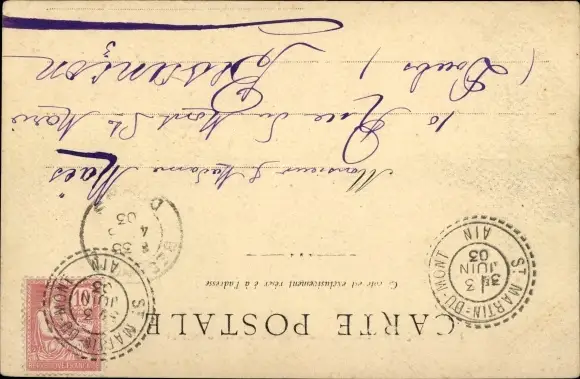 CARTE POSTALE
Ce côté est exclusivement réservé à l'adresse
ST MARTIN-DU-MONT
3E
3
JUIN
03
AIN
ST MARTIN-DU-MONT
3
JUIN
03
AIN
10
4
03
Monsieur & Madame Maës
10 Rue du Mont Ste Marie
Besançon
(Doubs)